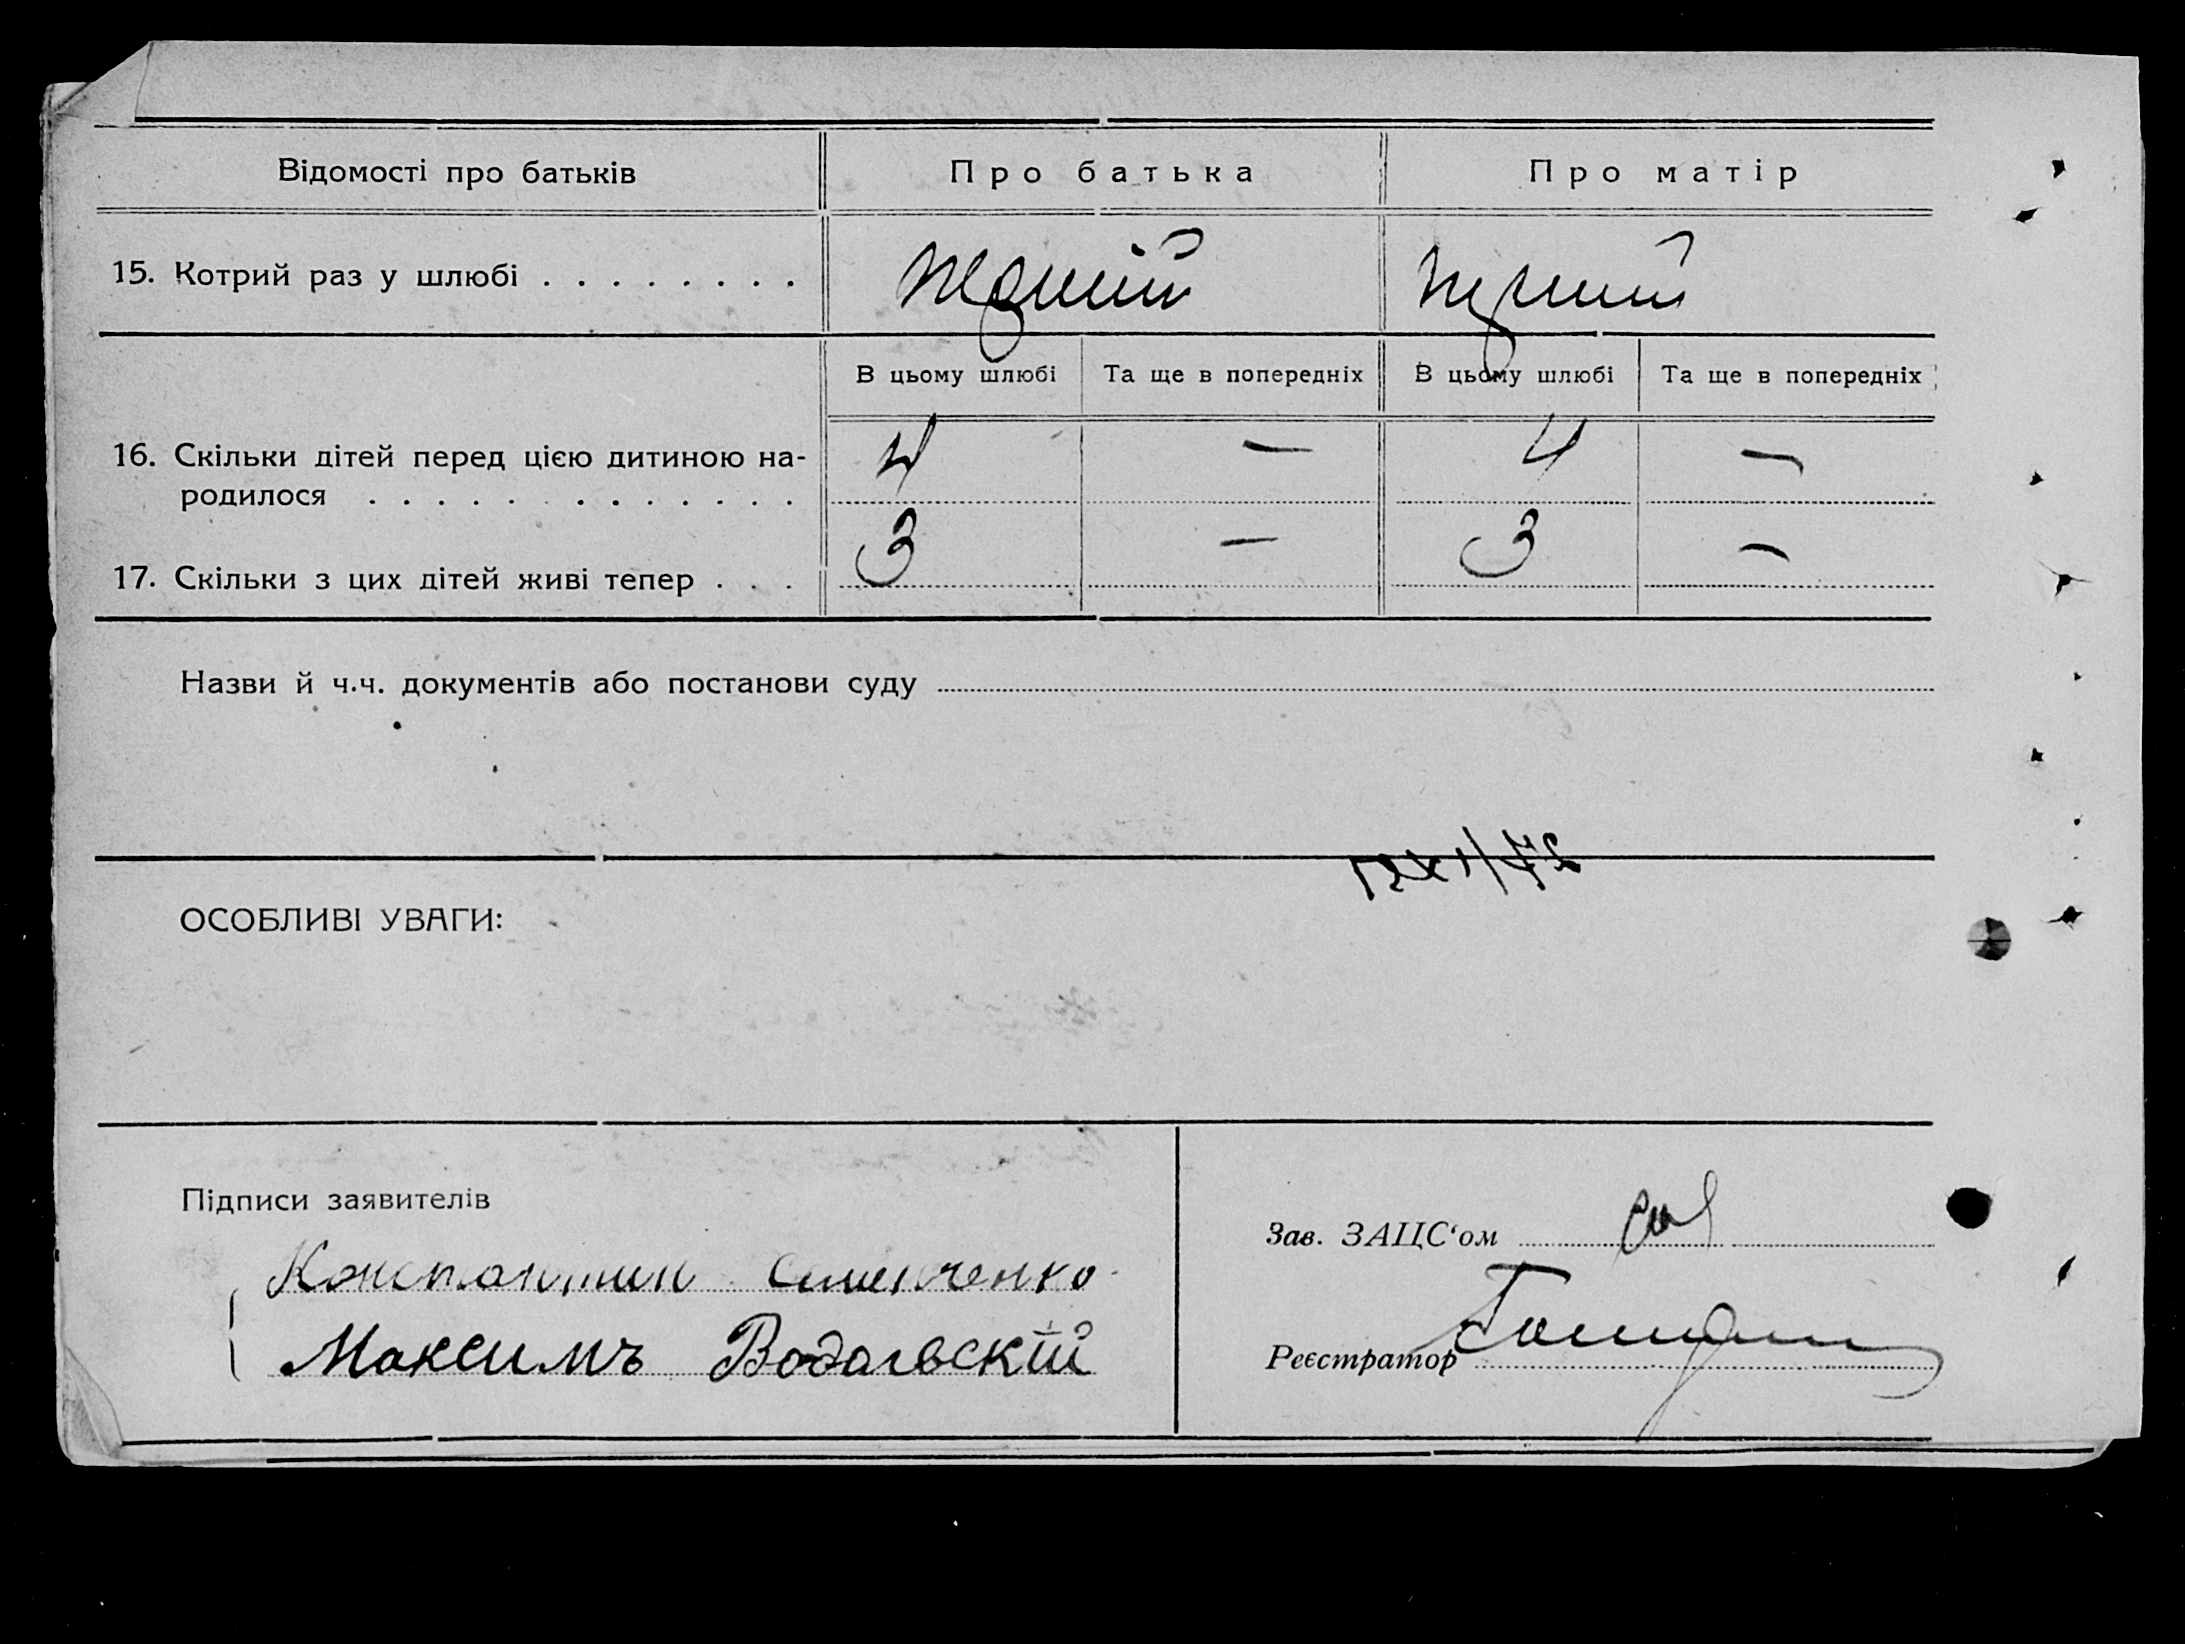 Відомості про батьків
Про батька
Про матір
15. Котрий раз у шлюбі . . . . . . . .
В цьому шлюбі
Та ще в попередніх
В цьому шлюбі
Та ще в попередніх
16. Скільки дітей перед цією дитиною на-
4 — 4 —
родилося . . . . . . . . . . . . .
17. Скільки з цих дітей живі тепер . . .
3 — 3 —
Назви й ч.ч. документів або постанови суду
ОСОБЛИВІ УВАГИ:
Підписи заявителів
Константин Семенченко
Максимъ
Зав. ЗАЦС‘ом
Реєстратор